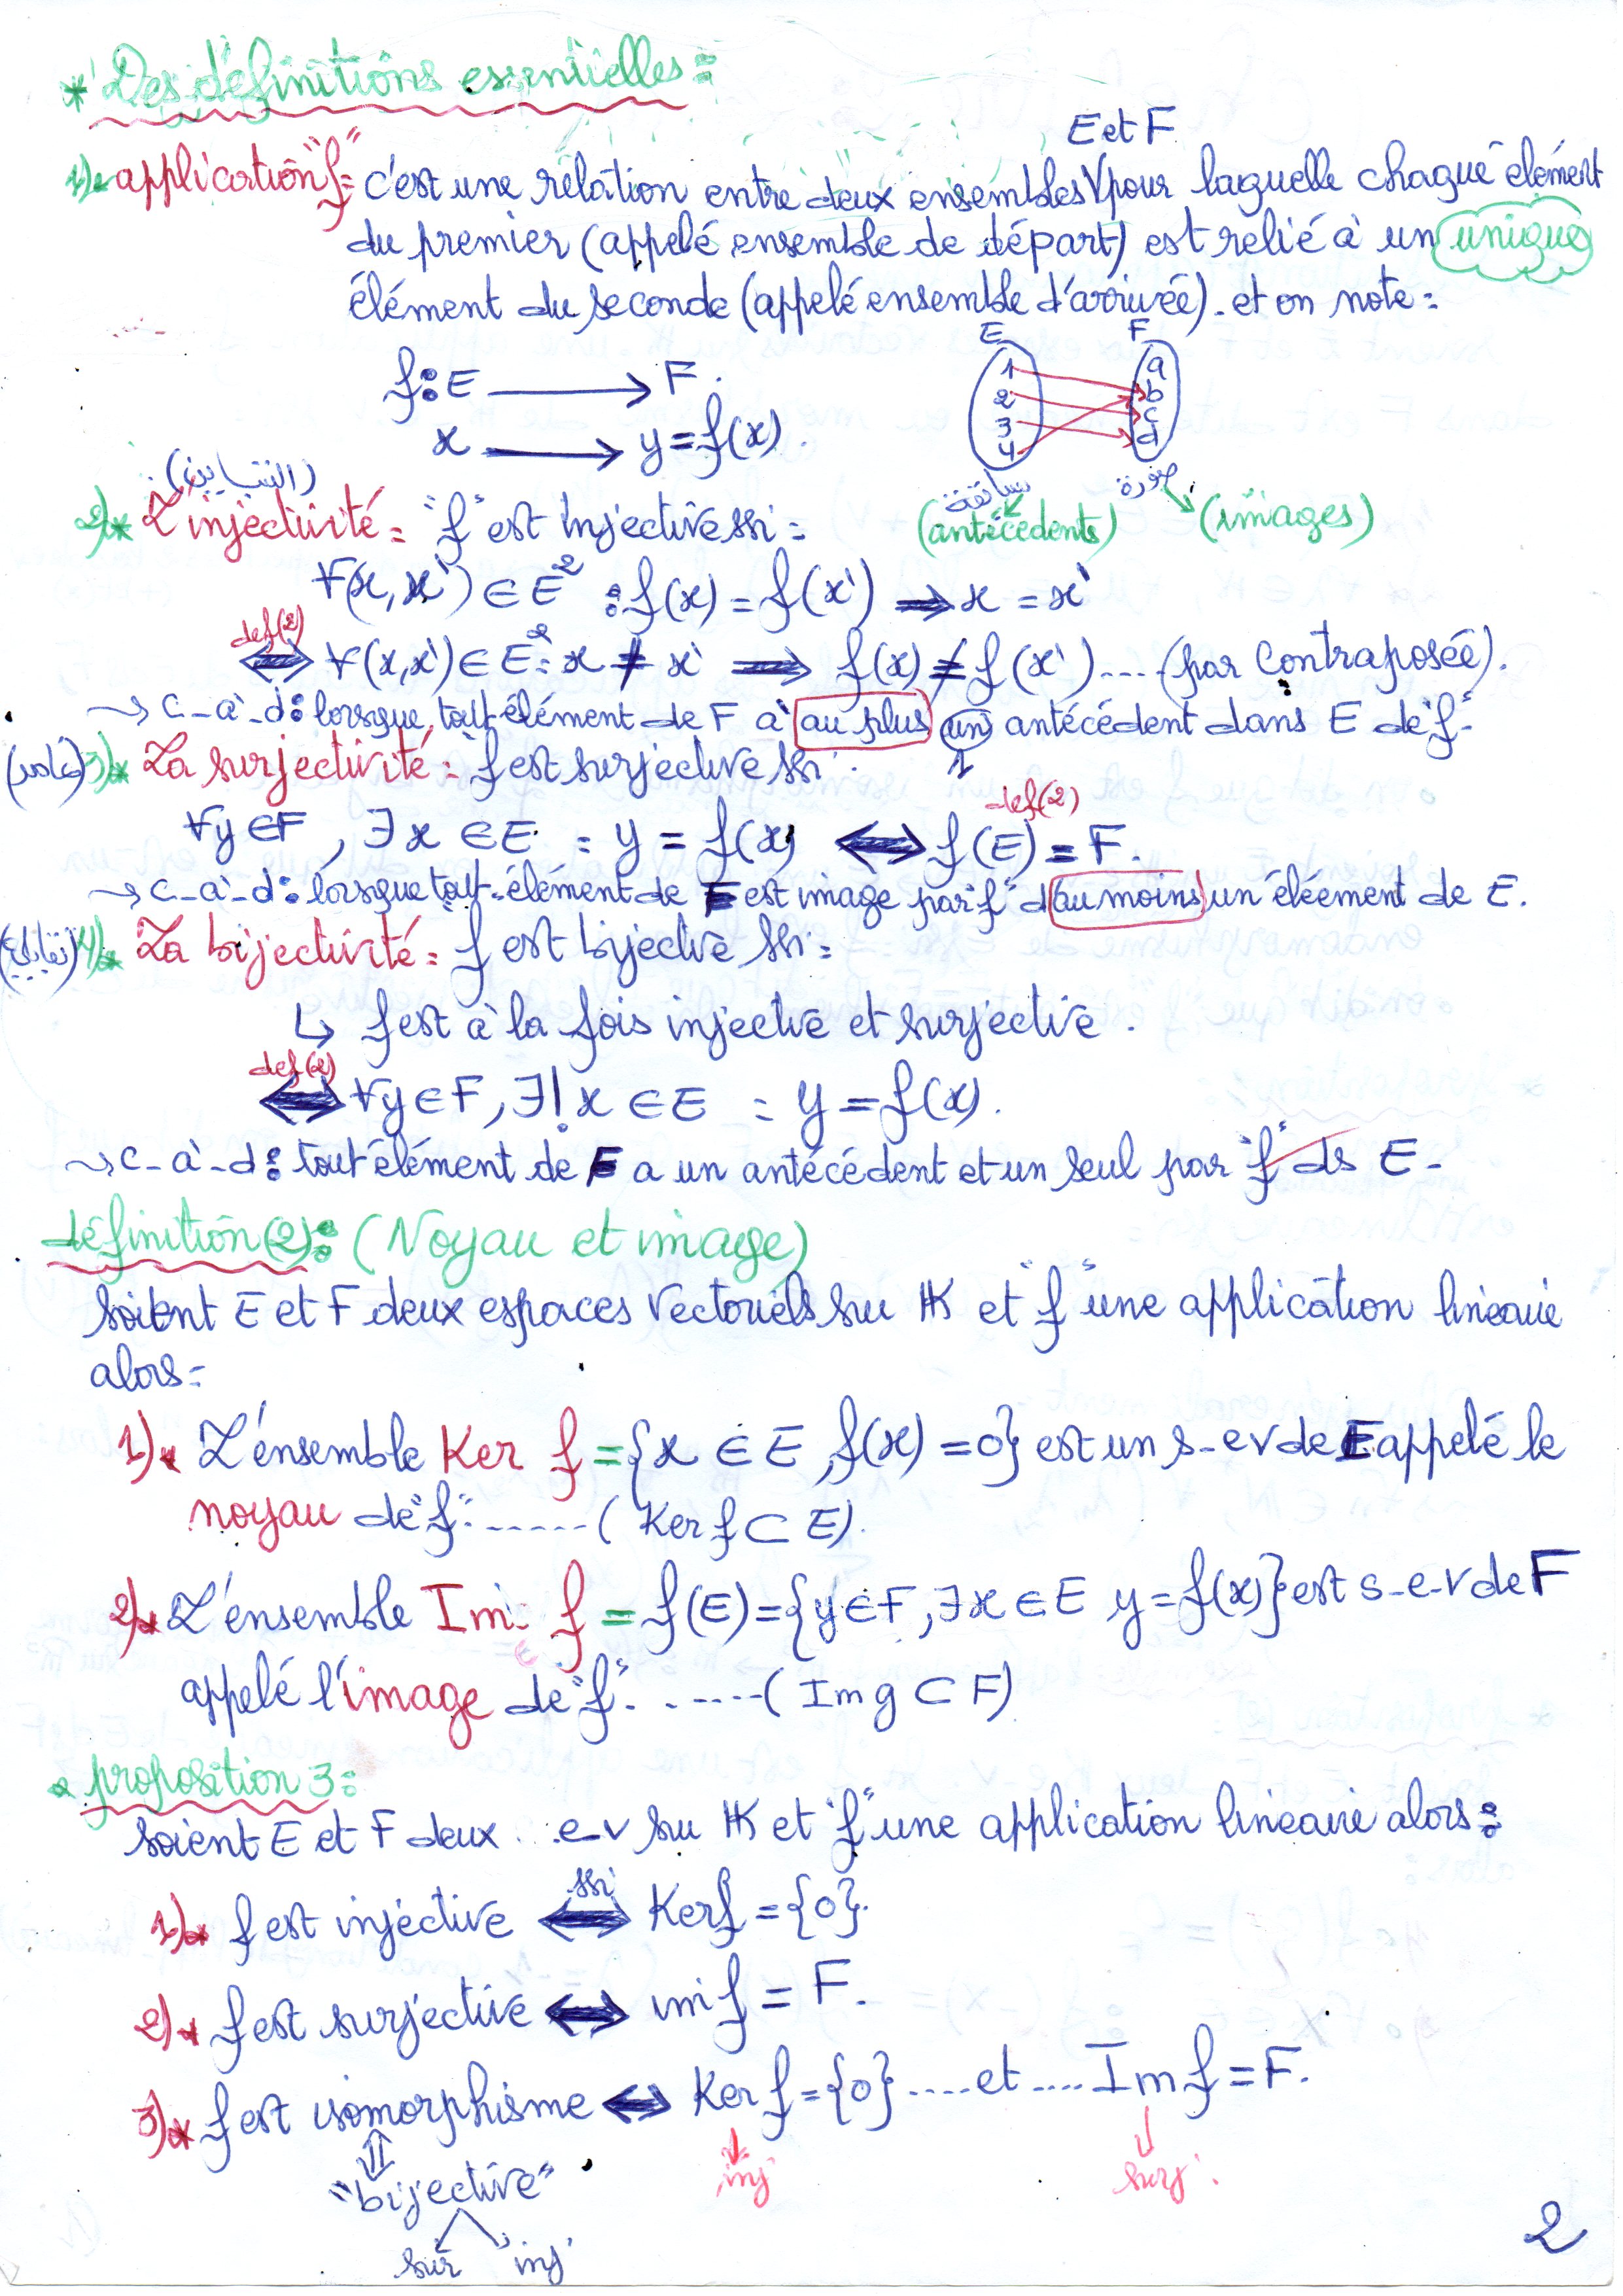 * Des définitions essentielles :
E et F
1)* application "f" : c'est une rélation entre deux ensembles pour laquelle chaque élément
du premier (appelé ensemble de départ) est relié à un unique
élément du seconde (appelé ensemble d'arrivée). et on note :
E F
f : E ⟶ F.
x ⟶ y = f(x).
1 2 3 4
a b c d
سابقة صورة
(antécédents) (images)
(التباين)
2)* L'injectivité : "f" est injective ssi :
∀(x, x') ∈ E² : f(x) = f(x') ⟹ x = x'
def(2)
⟺ ∀(x,x') ∈ E² : x ≠ x' ⟹ f(x) ≠ f(x') .... (par contraposée).
→ c-à-d : lorsque tout élément de F a au plus un antécédent dans E de "f".
1
(غامر) 3)* La surjectivité : "f" est surjective ssi :
def(2)
∀y ∈ F, ∃ x ∈ E : y = f(x) ⟺ f(E) = F.
→ c-à-d : lorsque tout élément de F est image par "f" d'au moins un éléement de E.
(تقابل) 4)* La bijectivité : "f" est bijective ssi :
↳ f est à la fois injective et surjective.
def(2)
⟺ ∀y ∈ F, ∃! x ∈ E : y = f(x).
→ c-à-d : tout élément de F a un antécédent et un seul par "f" ds E.
définition(2) : (Noyau et image)
soient E et F deux espaces vectoriels sur IK et "f" une application lineaire
alors :
1)* L'énsemble Ker f = {x ∈ E, f(x) = 0} est un s-ev de E appelé le
noyau de "f". ...... (Ker f ⊂ E).
2)* L'énsemble Im f = f(E) = {y ∈ F, ∃ x ∈ E y = f(x)} est s-e-v de F
appelé l'image de "f". ...... (Im g ⊂ F)
* proposition 3 :
soient E et F deux e-v sur IK et "f" une application lineaire alors :
ssi
1)* f est injéctive ⟺ Ker f = {0}.
2)* f est surjéctive ⟺ im f = F.
3)* f est isomorphisme ⟺ Ker f = {0} .... et .... Im f = F.
⇕ ↓ ↓
"bijective" inj surj.
sur inj
2